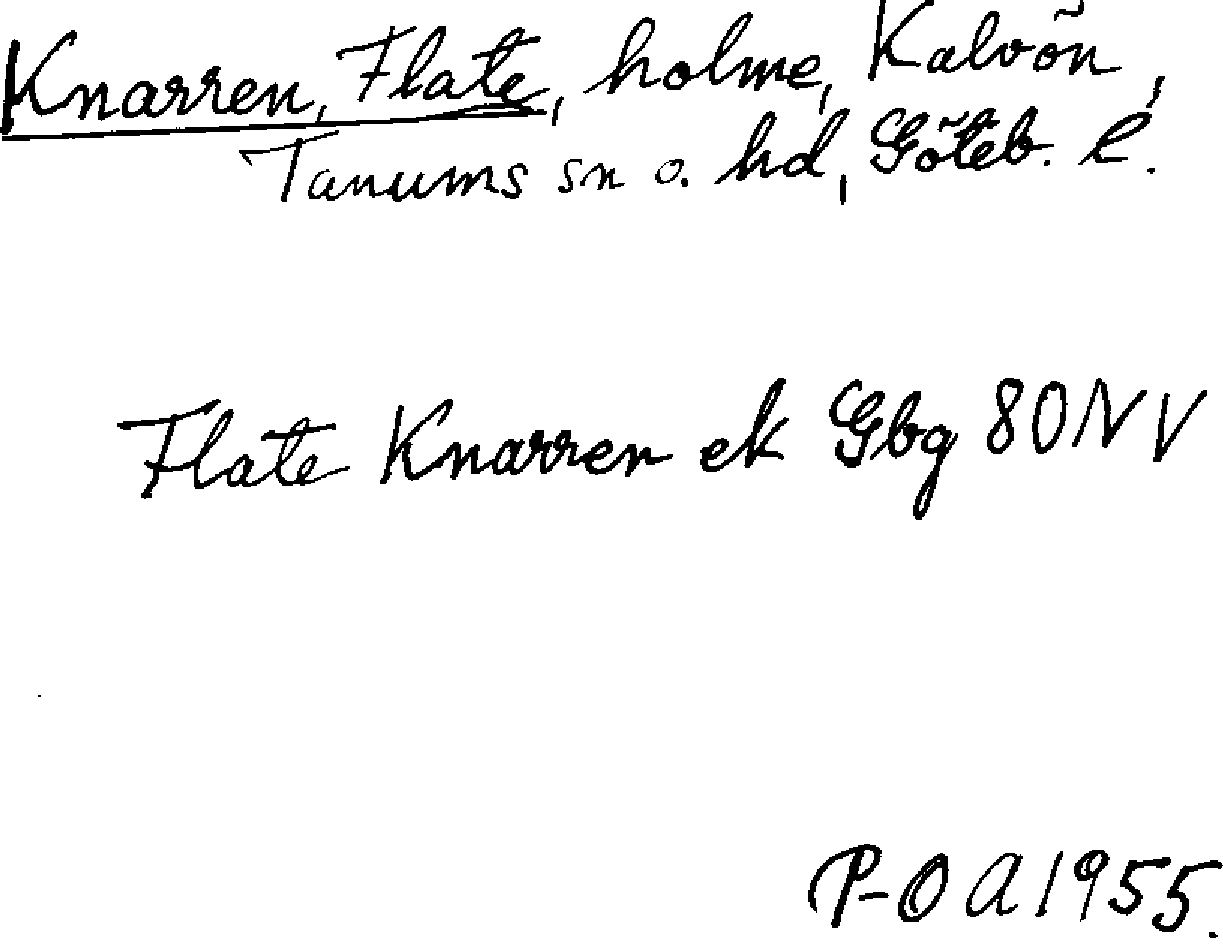 Knarren, Flate, holme, Kalvön,
Tanums sn o. hd, Göteb. l.
Flate Knarren ek Gbg 80 NV
P-O A 1955.